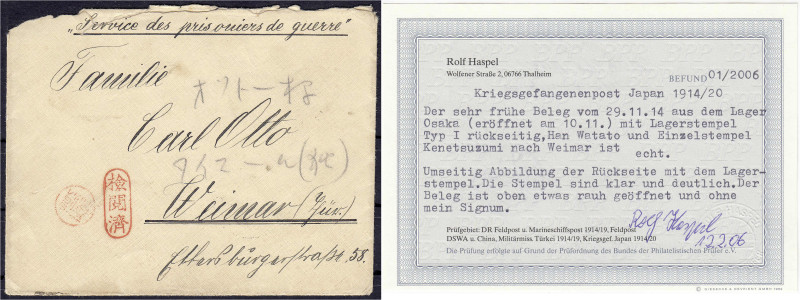 „Service des prisoniers de guerre"
Familie
オットー様
Carl Otto
検閲濟
Weimar (Tür.)
Ettersburgerstraße 58.
Rolf Haspel
Wolfener Straße 2, 06766 Thalheim
BEFUND 01/2006
Kriegsgefangenenpost Japan 1914/20
Der sehr frühe Beleg vom 29.11.14 aus dem Lager
Osaka (eröffnet am 10.11.) mit Lagerstempel
Typ I rückseitig,Han Watato und Einzelstempel
Kenetsuzumi nach Weimar ist
echt.
Umseitig Abbildung der Rückseite mit dem Lager-
stempel.Die Stempel sind klar und deutlich.Der
Beleg ist oben etwas rauh geöffnet und ohne
mein Signum.
Rolf Haspel
12.2.06
Prüfgebiet: DR Feldpost u. Marineschiffspost 1914/19, Feldpost
DSWA u. China, Militärmiss. Türkei 1914/19, Kriegsgef. Japan 1914/20
Die Prüfung erfolgte auf Grund der Prüfordnung des Bundes der Philatelistischen Prüfer e.V.